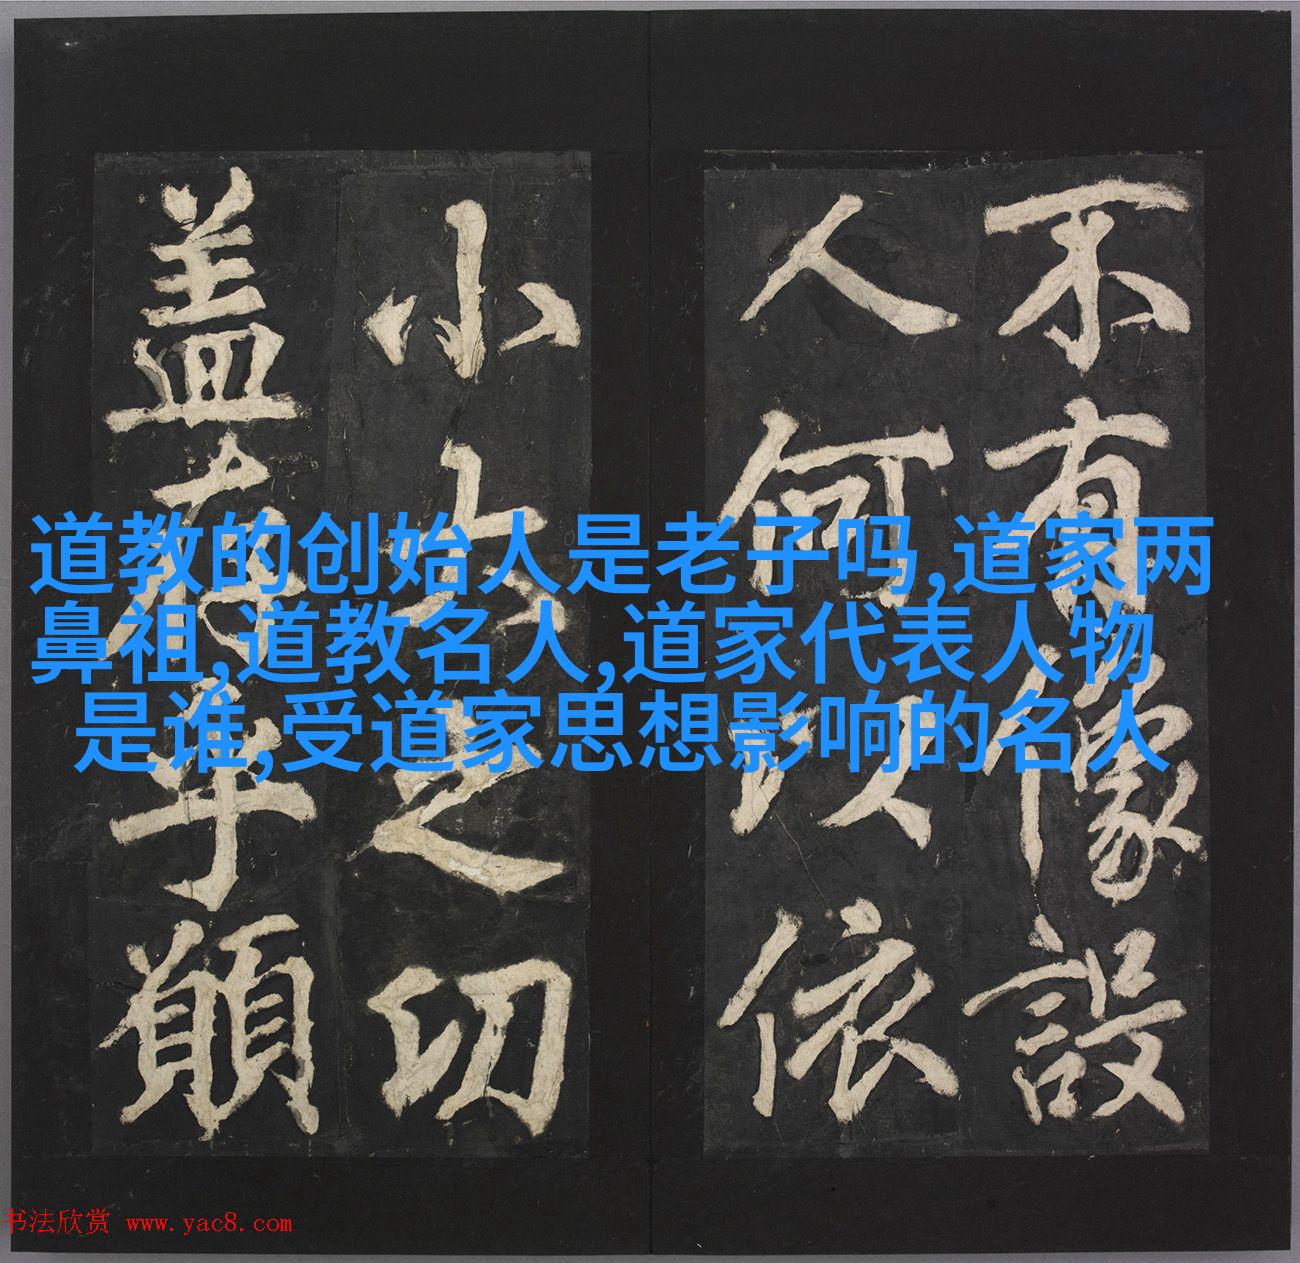 不有像設
人何以依
小大之切
蓋有等
道教的创始人是老子吗,道家两
鼻祖,道教名人,道家代表人物
是谁,受道家思想影响的名人
书法欣赏 www.yac8.com